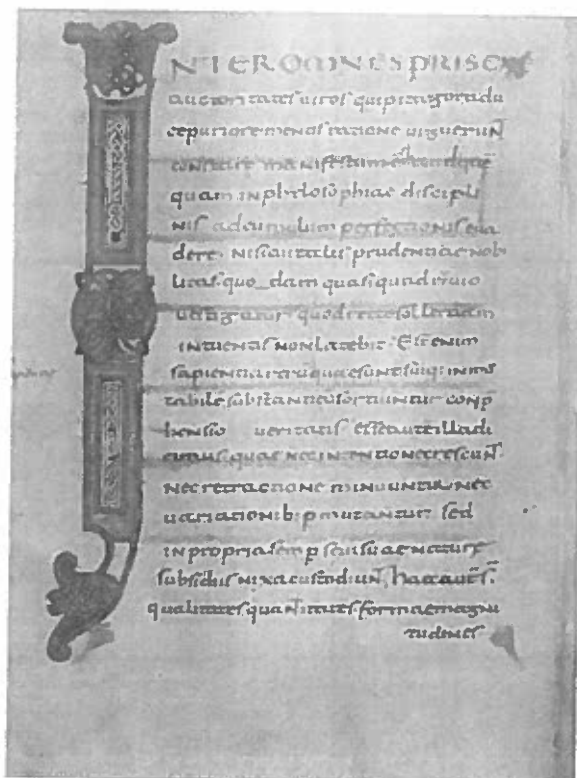 INTER OMNES PRISCAE
auctoritatis uiros qui pitagora du
ce puriore mentis ratione uiguerunt
constare manifestum haud quē
quam in phylosophiae discipli
nis ad cumulum perfectionis eua
dere. nisi cui talis prudentiae nobi
litas quodam quasi quadruuio
uestigatur. quod recte sollertiam
intuentis non latebit. Est enim
sapientia rerū quae sunt suiq; inmu
tabilē substantiā sortiuntur conp̄
hensio ueritatis esse autē illa di
cimus. quae nec intentione crescunt
nec retractione minuuntur. nec
uariationib; pmutantur. sed
in propria semp
subsidiis nixa custodiunt, haec autē sī
qualitates. quantitates. formae magni
tudines